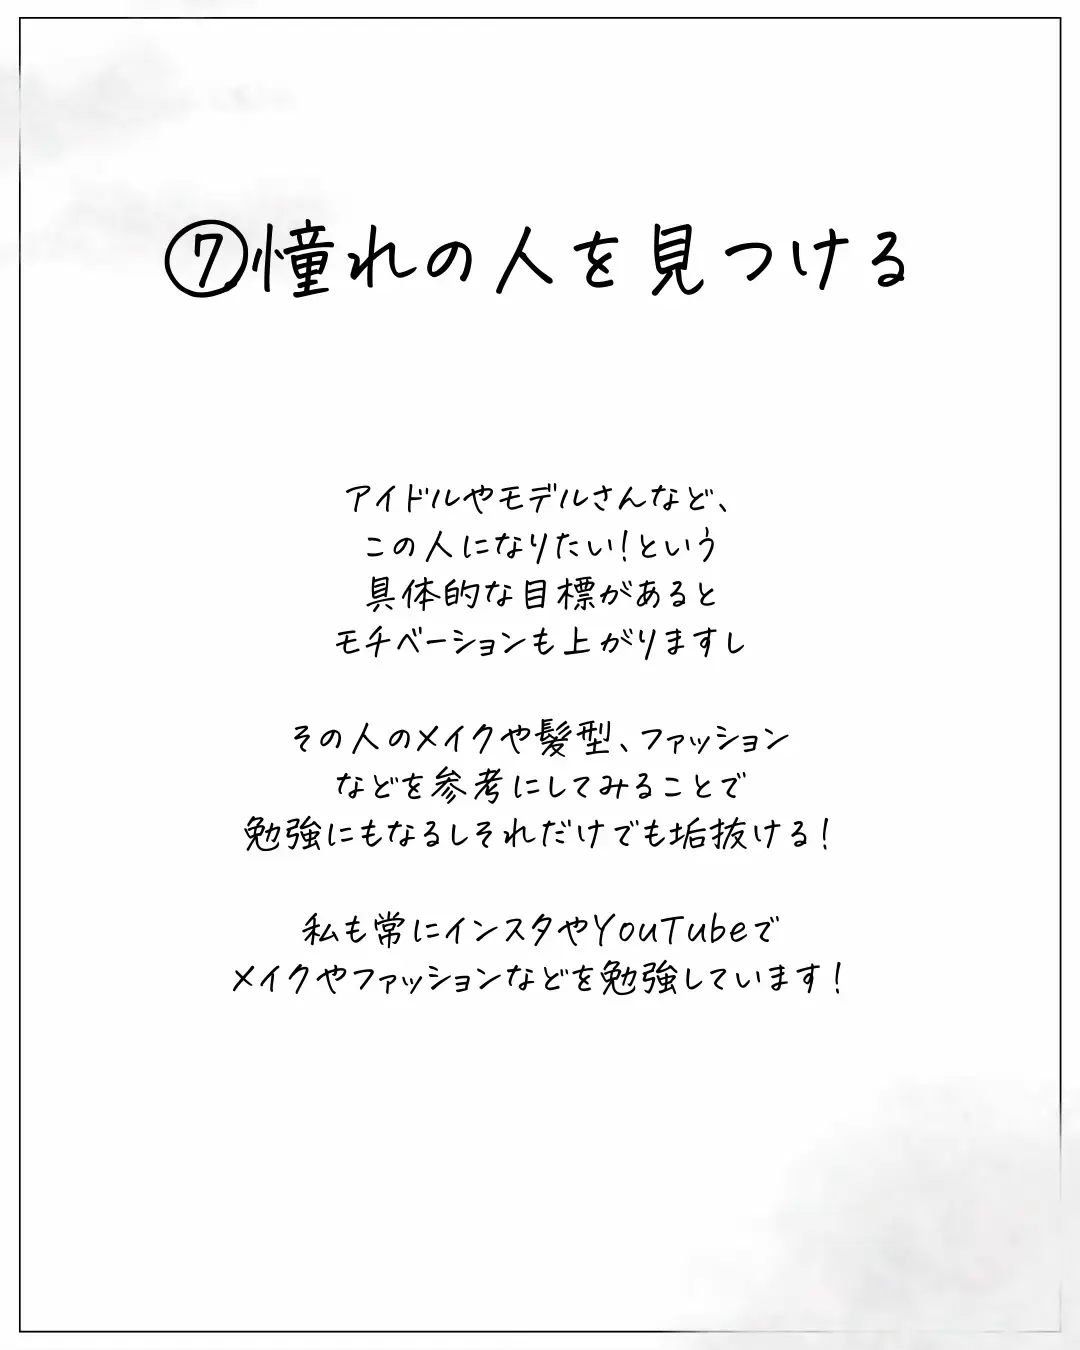 ⑦憧れの人を見つける
アイドルやモデルさんなど、
この人になりたい！という
具体的な目標があると
モチベーションも上がりますし
その人のメイクや髪型、ファッション
などを参考にしてみることで
勉強にもなるしそれだけでも垢抜ける！
私も常にインスタやYouTubeで
メイクやファッションなどを勉強しています！